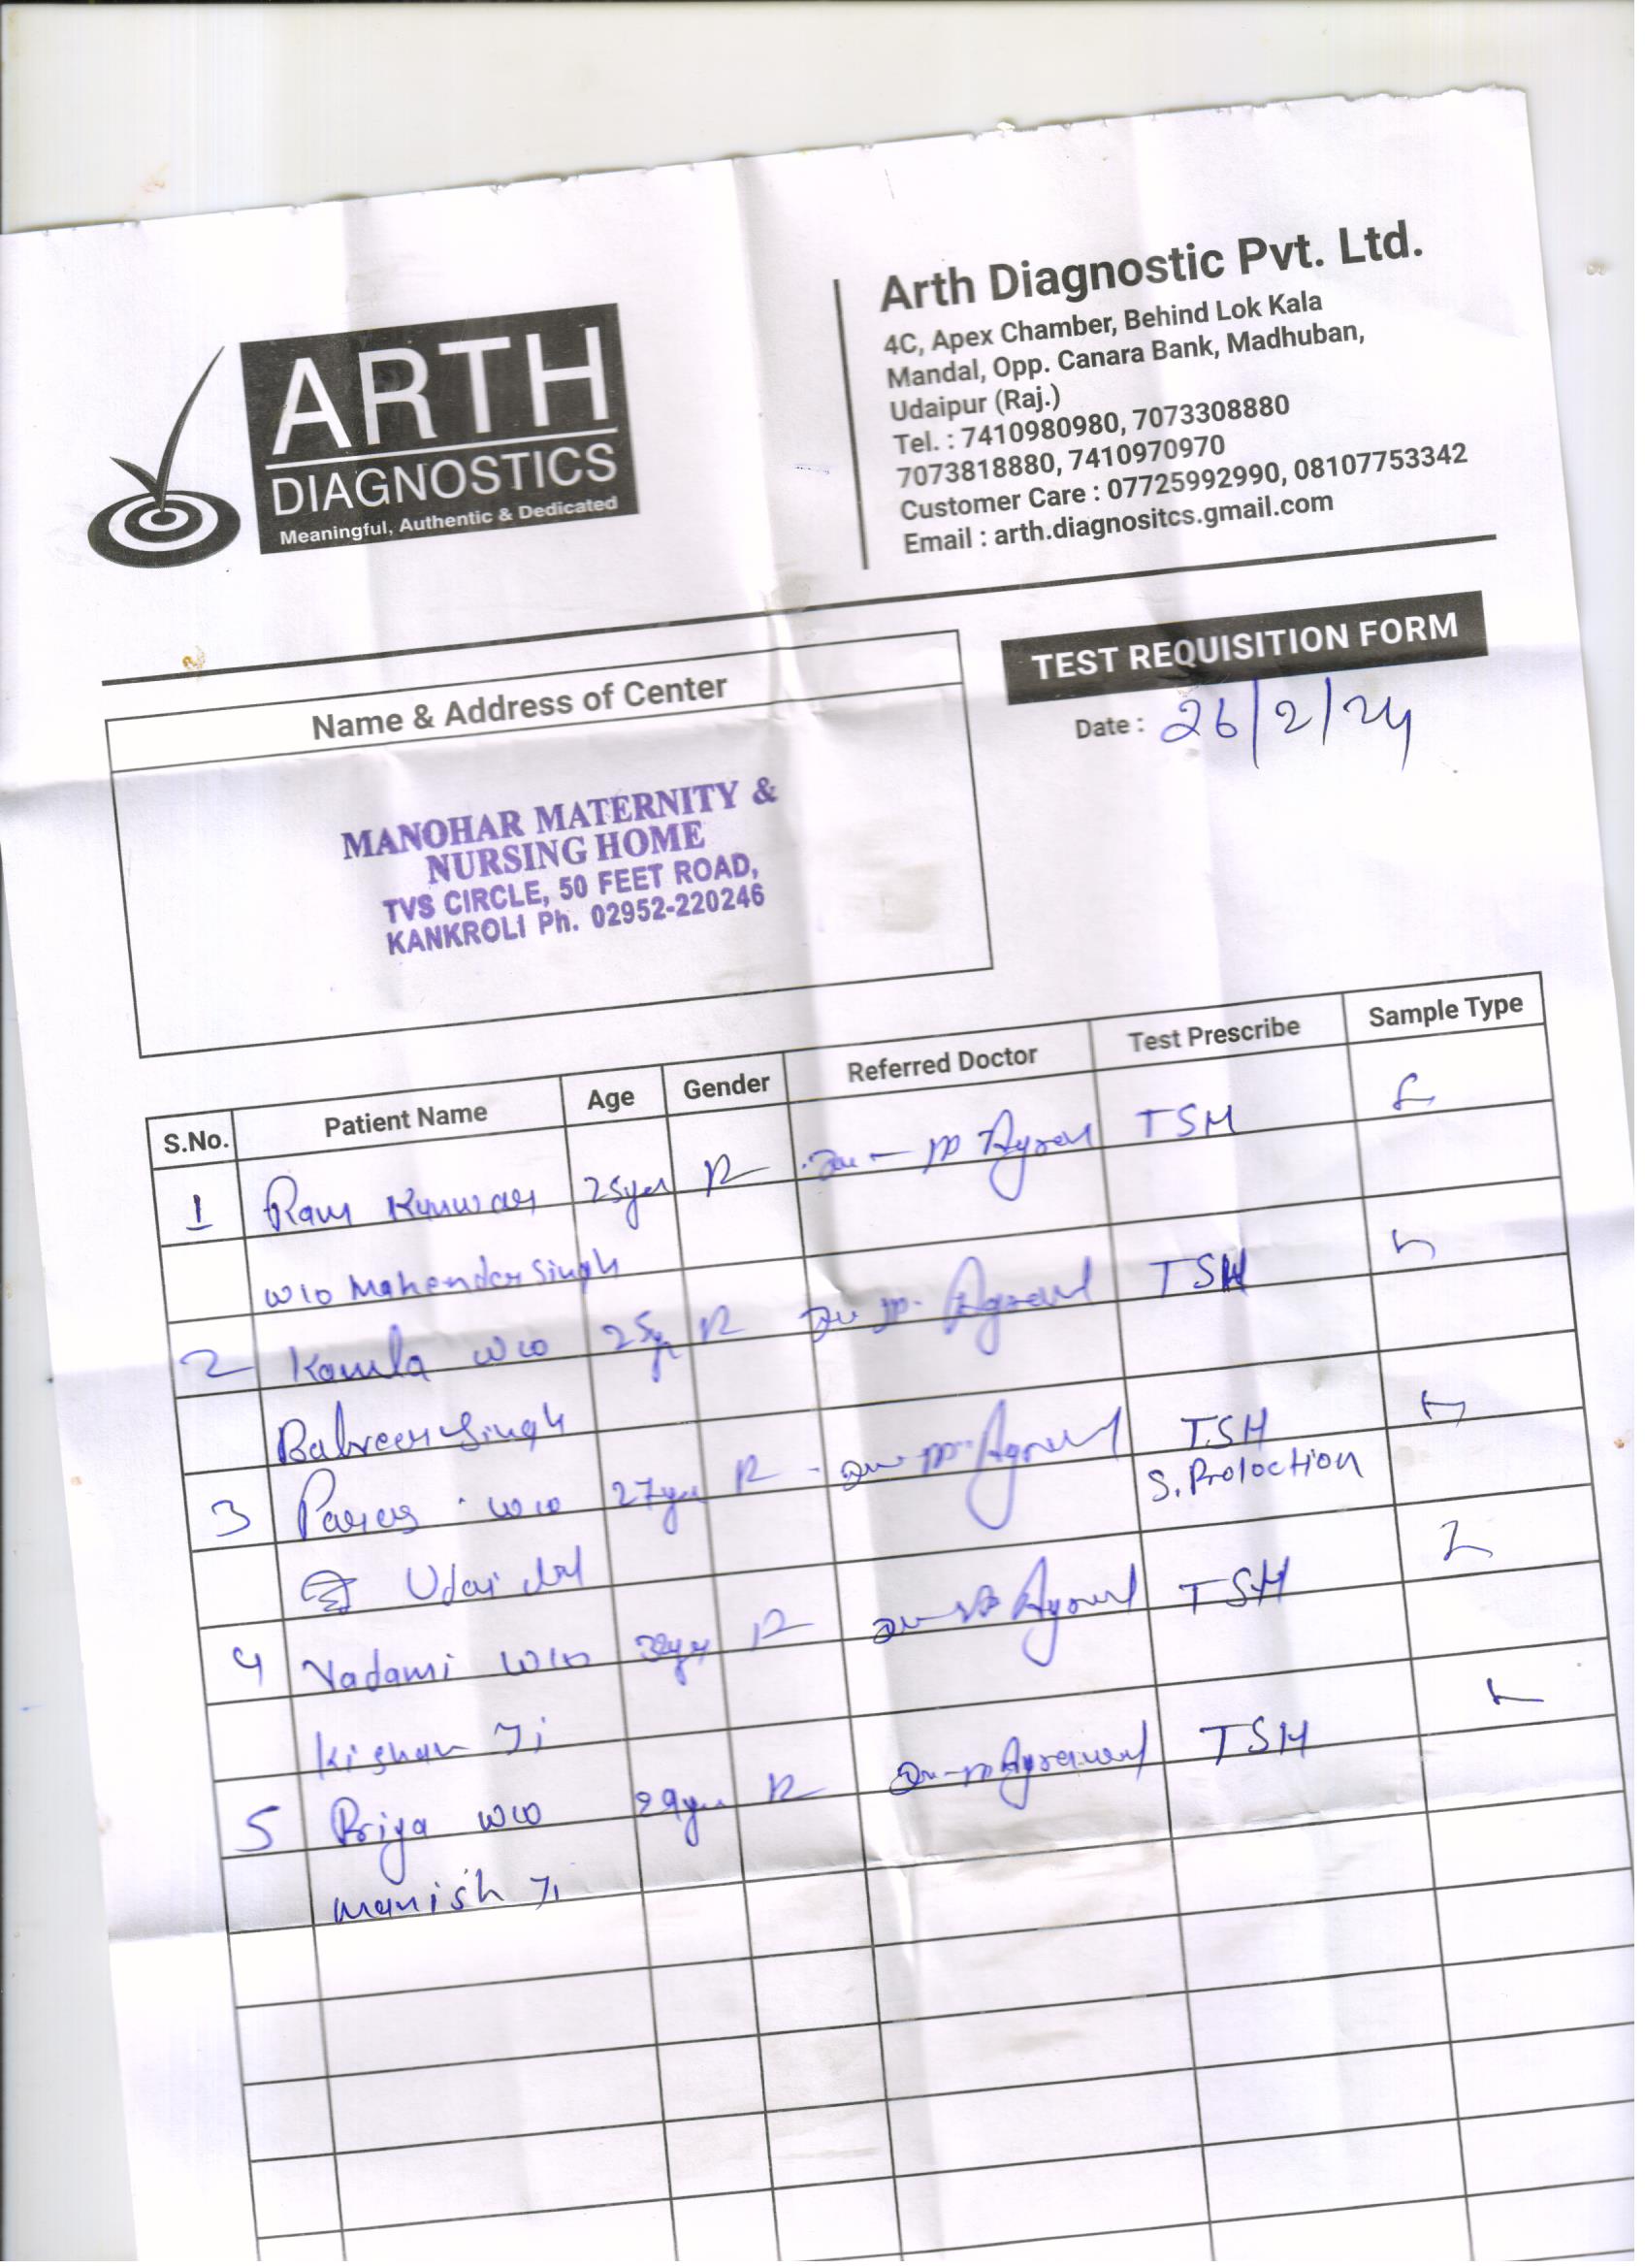 ARTH
DIAGNOSTICS
Meaningful, Authentic & Dedicated
Arth Diagnostic Pvt. Ltd.
4C, Apex Chamber, Behind Lok Kala
Mandal, Opp. Canara Bank, Madhuban,
Udaipur (Raj.)
Tel. : 7410980980, 7073308880
7073818880, 7410970970
Customer Care : 07725992990, 08107753342
Email : arth.diagnositcs.gmail.com
TEST REQUISITION FORM
Date : 26/2/24
Name & Address of Center
MANOHAR MATERNITY &
NURSING HOME
TVS CIRCLE, 50 FEET ROAD,
KANKROLI Ph. 02952-220246
S.No. Patient Name Age Gender Referred Doctor Test Prescribe Sample Type
1 Kunwar 25yer Agrawal TSH
w/o Mahender Singh
2 Kamla w/o 25yr Agrawal TSH
Balveer Singh
3 Paras w/o 27yer Agrawal TSH
S. Proloction
Udai
4 w/o Agrawal TSH
Kishan Ji
5 Priya w/o 29yer Agrawal TSH
Manish Ji